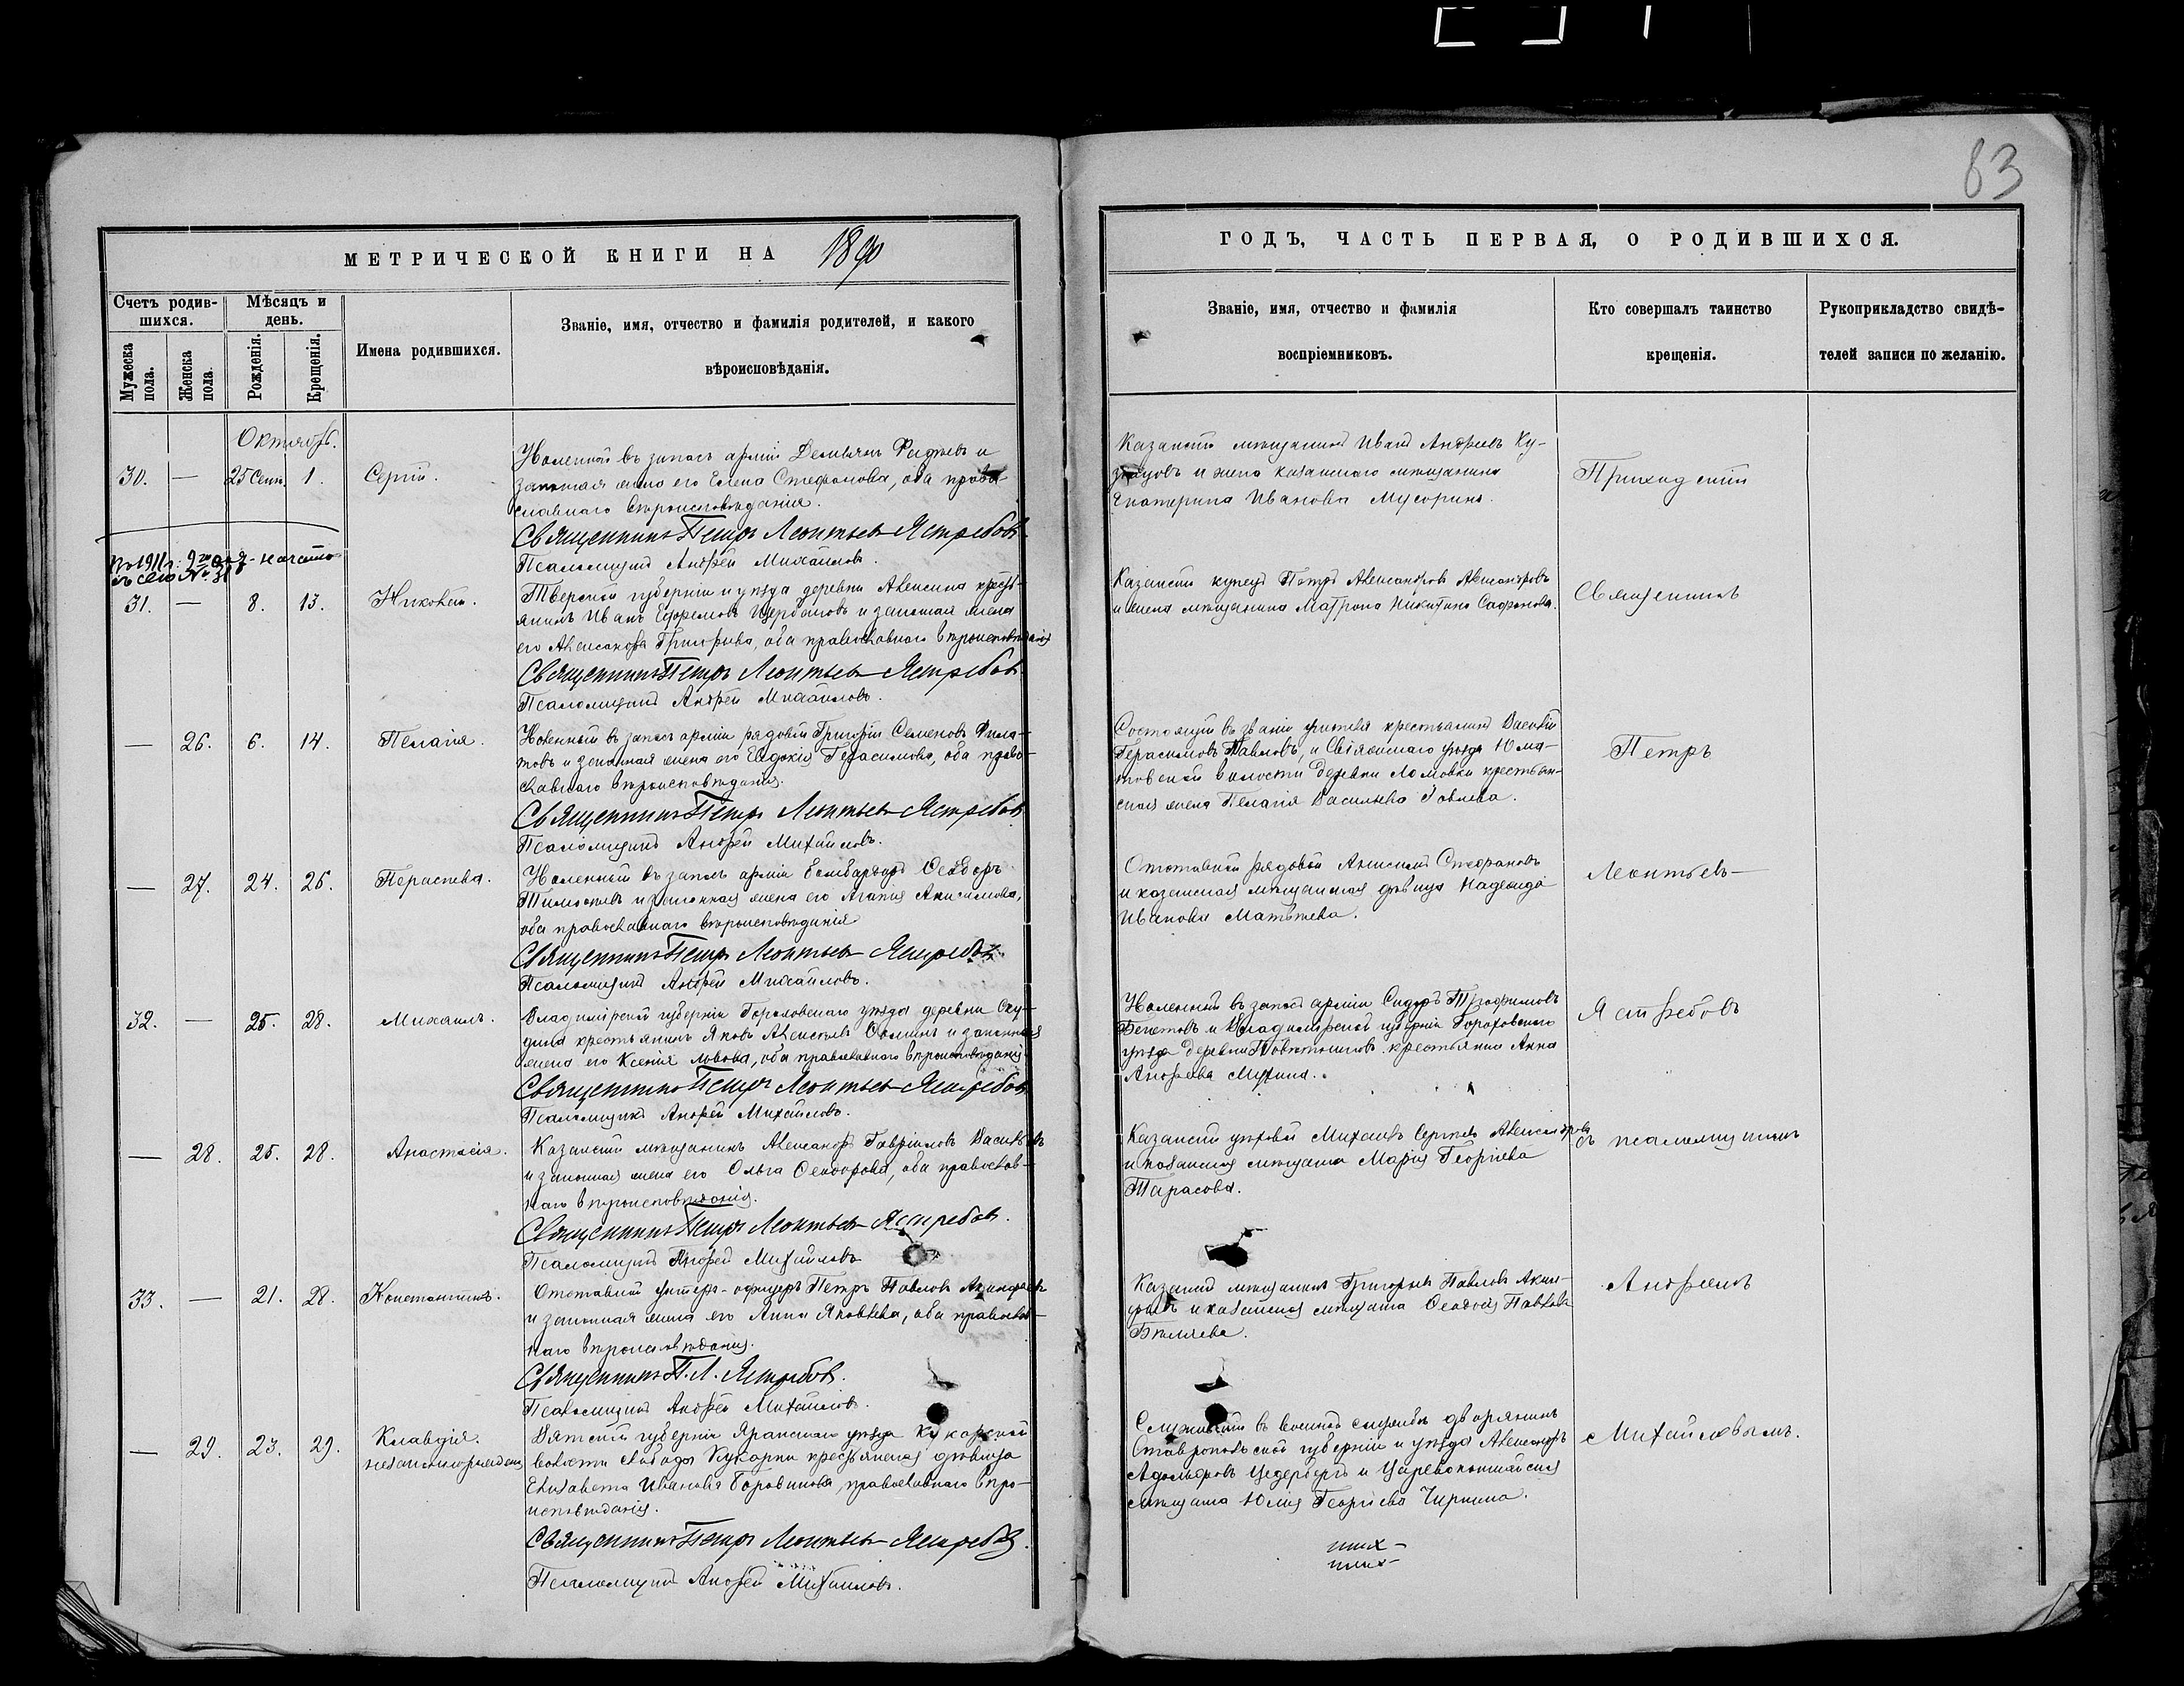 83
МЕТРИЧЕСКОЙ КНИГИ НА 1890
ГОДЪ, ЧАСТЬ ПЕРВАЯ, О РОДИВШИХСЯ.
Счетъ родив-
шихся.
Мѣсяцъ и
день.
Мужеска
пола.
Женска
пола.
Рожденія.
Крещенія.
Имена родившихся.
Званіе, имя, отчество и фамилія родителей, и какого
вѣроисповѣданія.
Званіе, имя, отчество и фамилія
воспріемниковъ.
Кто совершалъ таинство
крещенія.
Рукоприкладство свидѣ-
телей записи по желанію.
Октябрь.
30. — 25 Сент. 1. Сергій.
Уволенный въ запасъ арміи Демьянъ и
законная жена его Елена Стефанова, оба право-
славнаго вѣроисповѣданія.
Священникъ Петръ Леонтьевъ Ястребовъ.
Псаломщикъ Андрей Михайловъ.
Казанскій мѣщанинъ Иванъ Андреевъ Ку-
знецовъ и жена казанскаго мѣщанина
Екатерина Иванова Мусорина.
Приходскій
31. — 8. 13. Николай.
Тверской губерніи и уѣзда деревни кресть-
янинъ Иванъ Ефремовъ Щербаковъ и законная жена
его Александра Григорьева, оба православнаго вѣроисповѣданія
Священникъ Петръ Леонтьевъ Ястребовъ.
Псаломщикъ Андрей Михайловъ.
Казанскій купецъ Петръ Александровъ Александровъ
и жена мѣщанина Матрона Никитина Сафонова.
Священникъ
— 26. 6. 14. Пелагія.
Уволенный въ запасъ арміи рядовой Григорій Семеновъ Фила-
товъ и законная жена его Евдокія Герасимова, оба право-
славнаго вѣроисповѣданія.
Священникъ Петръ Леонтьевъ Ястребовъ
Псаломщикъ Андрей Михайловъ.
Состоящій въ званіи учителя крестьянинъ Василій
Герасимовъ Павловъ, и Свіяжскаго уѣзда Юма-
товской волости деревни Ломовки крестьян-
ская жена Пелагія Васильева
Петръ
— 27. 24. 26. Параскева.
Уволенный въ запасъ арміи Бомбардиръ Ѳеодоръ
Тимофеевъ и законная жена его Агапія Анисимова,
оба православнаго вѣроисповѣданія
Священникъ Петръ Леонтьевъ Ястребовъ
Псаломщикъ Андрей Михайловъ.
Отставной рядовой Анисимъ Стефановъ
и казанская мѣщанская дѣвица Надежда
Иванова Матвѣева.
Леонтьевъ
32. — 25. 28. Михаилъ.
Владимірской губерніи Гороховскаго уѣзда деревни
крестьянинъ Яковъ Алексѣевъ и законная
жена его Ксенія Львова, оба православнаго вѣроисповѣданія
Священникъ Петръ Леонтьевъ Ястребовъ
Псаломщикъ Андрей Михайловъ.
Уволенный въ запасъ арміи Сидоръ Трофимовъ
и Владимірской губерніи Гороховскаго
уѣзда деревни крестьянка Анна
Андреева
Ястребовъ
— 28. 25. 28. Анастасія.
Казанскій мѣщанинъ Александръ Гавріиловъ Васильевъ
и законная жена его Ольга Ѳеодорова, оба православ-
наго вѣроисповѣданія.
Священникъ Петръ Леонтьевъ Ястребовъ.
Псаломщикъ Андрей Михайловъ
Казанскій Михаилъ Сергѣевъ Александровъ
и казанская мѣщанка Марія Георгіева
Тарасова.
съ псаломщикомъ
33. — 21. 28. Константинъ.
Отставной унтеръ-офицеръ Петръ Павловъ
и законная жена его Анна Яковлева, оба православ-
наго вѣроисповѣданія.
Священникъ П. Л. Ястребовъ.
Псаломщикъ Андрей Михайловъ.
Казанскій мѣщанинъ Григорій Павловъ
и казанская мѣщанка Ѳеодосія Павлова
Бѣляева.
Андреемъ
— 29. 23. 29. Клавдія.
незаконнорожденная
Вятской губерніи Яранскаго уѣзда Кукарской
волости слободы Кукарки крестьянская дѣвица
Елизавета Иванова Боровикова, православнаго вѣро-
исповѣданія.
Священникъ Петръ Леонтьевъ Ястребовъ.
Псаломщикъ Андрей Михайловъ.
Служившій въ военной службѣ дворянинъ
Ставропольской губерніи и уѣзда Александръ
Адольфовъ Цедербергъ и Царевококшайская
мѣщанка Юлія Георгіева Чиркина.
Михайловымъ.